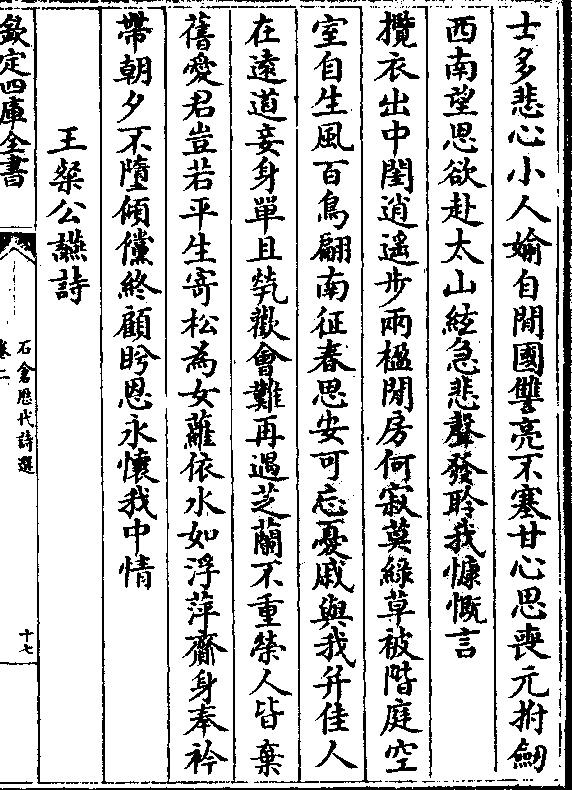 士多悲心小人媮自閒國讐亮不塞甘心思喪元拊劒
西南望思欲赴太山絃急悲聲發聆我慷慨言
攬衣出中閨逍遥步兩楹閒房何寂莫綠草被階庭空
室自生風百鳥翩南征春思安可忘憂戚與我并佳人
在遠道妾身單且煢歡會難再遇芝蘭不重榮人皆棄
舊愛君豈若平生寄松為女蘿依水如浮萍齎身奉衿
帶朝夕不墮傾儻終顧盻恩永懷我中情
王粲公讌詩
欽定四庫全書
石倉歷代詩選
卷二
十七